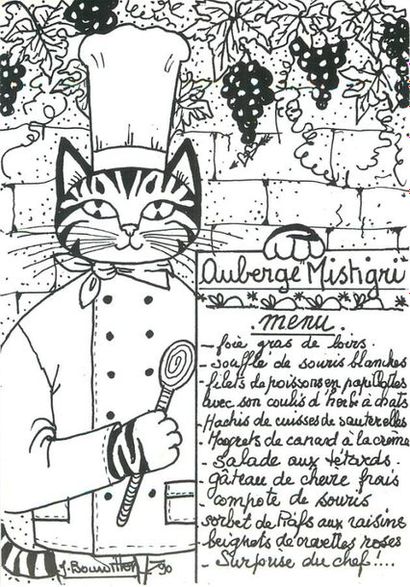 Auberge "Mistigri"
menu.
- foie gras de loirs.
- soufflé de souris blanches
- filets de poissons en papillottes
avec son coulis d'herbe à chats
- Hachis de cuisses de sauterelles
- Magrets de canard à la crème
- Salade aux têtards.
- gâteau de chevre frais
compote de souris
sorbet de Piafs aux raisins
beignets de crevettes roses
- Surprise du chef!....
90